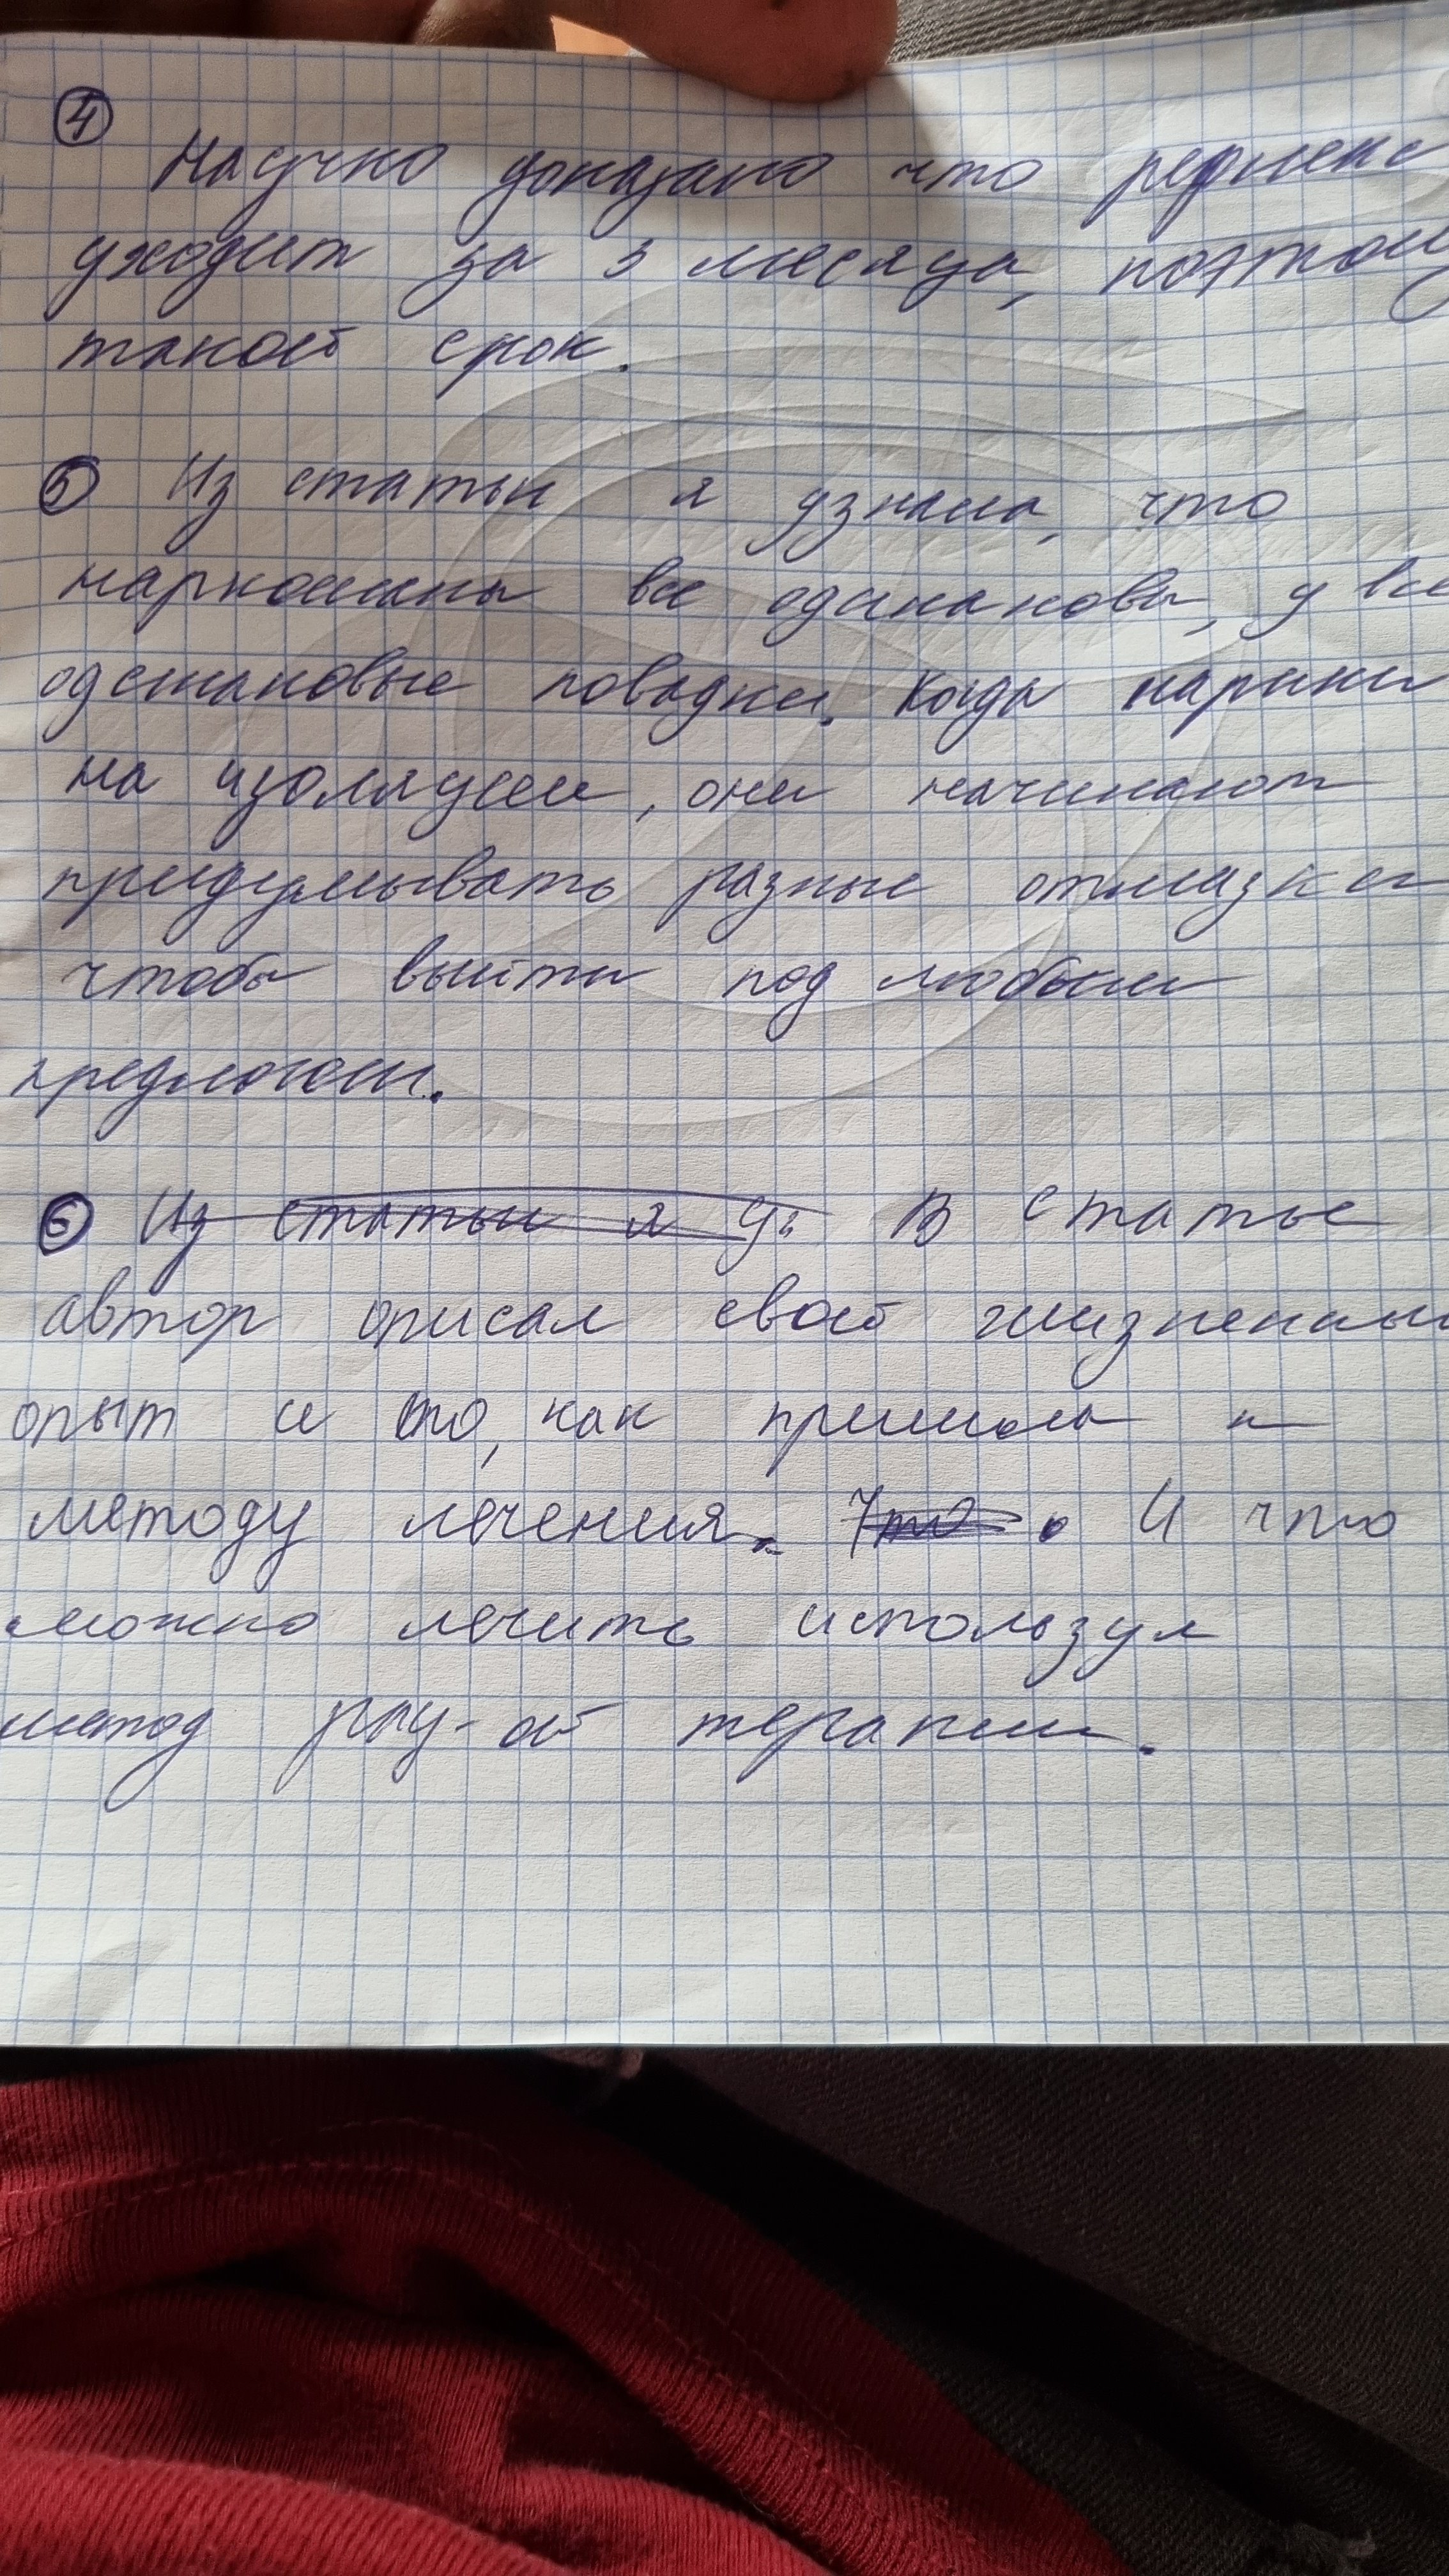 4
Научно доказано что рефлекс
уходит за 3 месяца, поэтому
такой срок.
5 Из статьи я узнала, что
наркоманы все одинаковы, у все
одинаковые повадки. Когда нарики
на изоляции, они начинают
придумывать разные отмазки
чтобы выйти под любым
предлогом.
6 Из статьи я у В статье
автор описал свой жизненный
опыт и то, как пришли к
методу лечения. Что. И что
можно лечить используя
метод терапии.